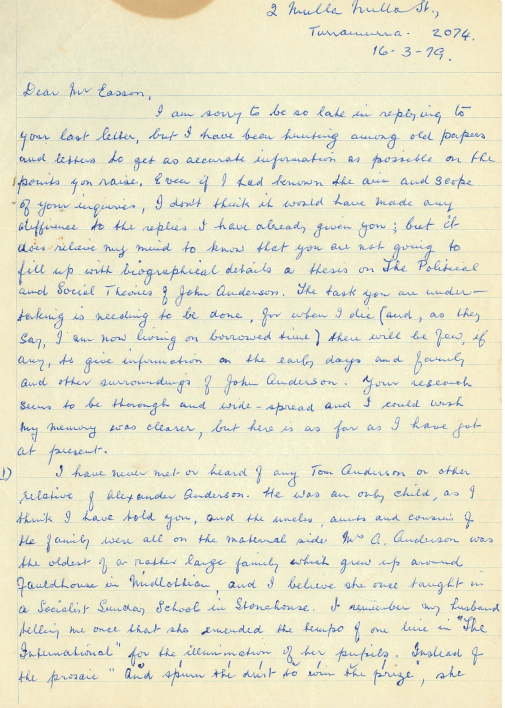 2 Mulla Mulla St.,
Turramurra. 2074.
16-3-79.
Dear Mr Easson,
I am sorry to be so late in replying to
your last letter, but I have been hunting among old papers
and letters to get as accurate information as possible on the
points you raise. Even if I had known the aim and scope
of your inquiries, I don't think it would have made any
difference to the replies I have already given you; but it
does relieve my mind to know that you are not going to
fill up with biographical details a thesis on The Political
and Social Theories of John Anderson. The task you are under-
taking is needing to be done, for when I die (and, as they
say, I am now living on borrowed time) there will be few, if
any, to give information on the early days and family
and other surroundings of John Anderson. Your research
seems to be thorough and wide-spread and I could wish
my memory was clearer, but here is as far as I have got
at present.
1) I have never met or heard of any Tom Anderson or other
relative of Alexander Anderson. He was an only child, as I
think I have told you, and the uncles, aunts and cousins of
the family were all on the maternal side. Mrs A. Anderson was
the oldest of a rather large family which grew up around
Fauldhouse in Midlothian, and I believe she once taught in
a Socialist Sunday School in Stonehouse. I remember my husband
telling me once that she emended the tempo of one line in "The
International" for the illumination of her pupils. Instead of
the prosaic "And spurn the dust to win the prize", she